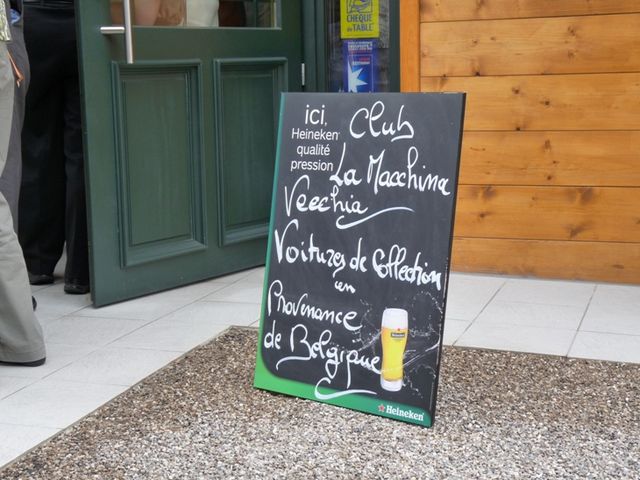 CHÈQUE
DE TABLE
ici,
Heineken
qualité
pression
Club
La Macchina
Vecchia
Voitures de Collection
en
Provenance
de Belgique
Heineken